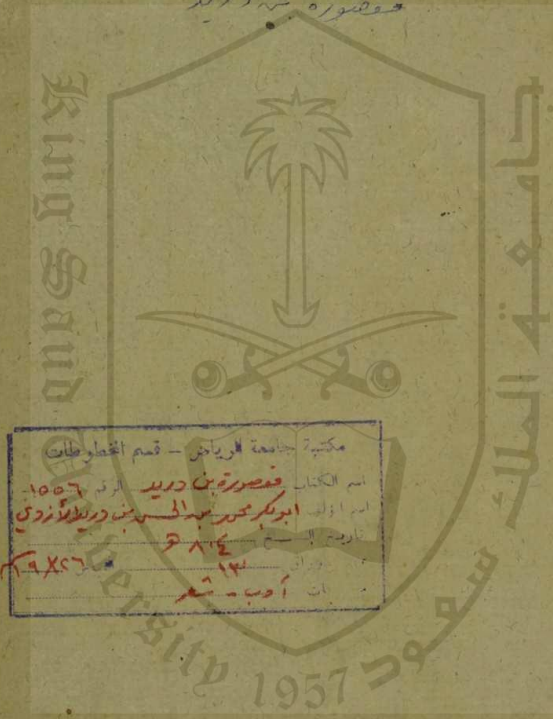 مقصورة بن دريد
King Saud University
جامعة الملك سعود
1957
مكتبة جامعة الرياض - قسم المخطوطات
اسم الكتاب مقصورة بن دريد الرقم ١٥٥٦
اسم المؤلف ابو بكر محمد بن الحسن بن دريد الأزدي
تاريخ النسخ ٨٠٤ هـ
١٣ ١٩X٢٦
أدب - شعر